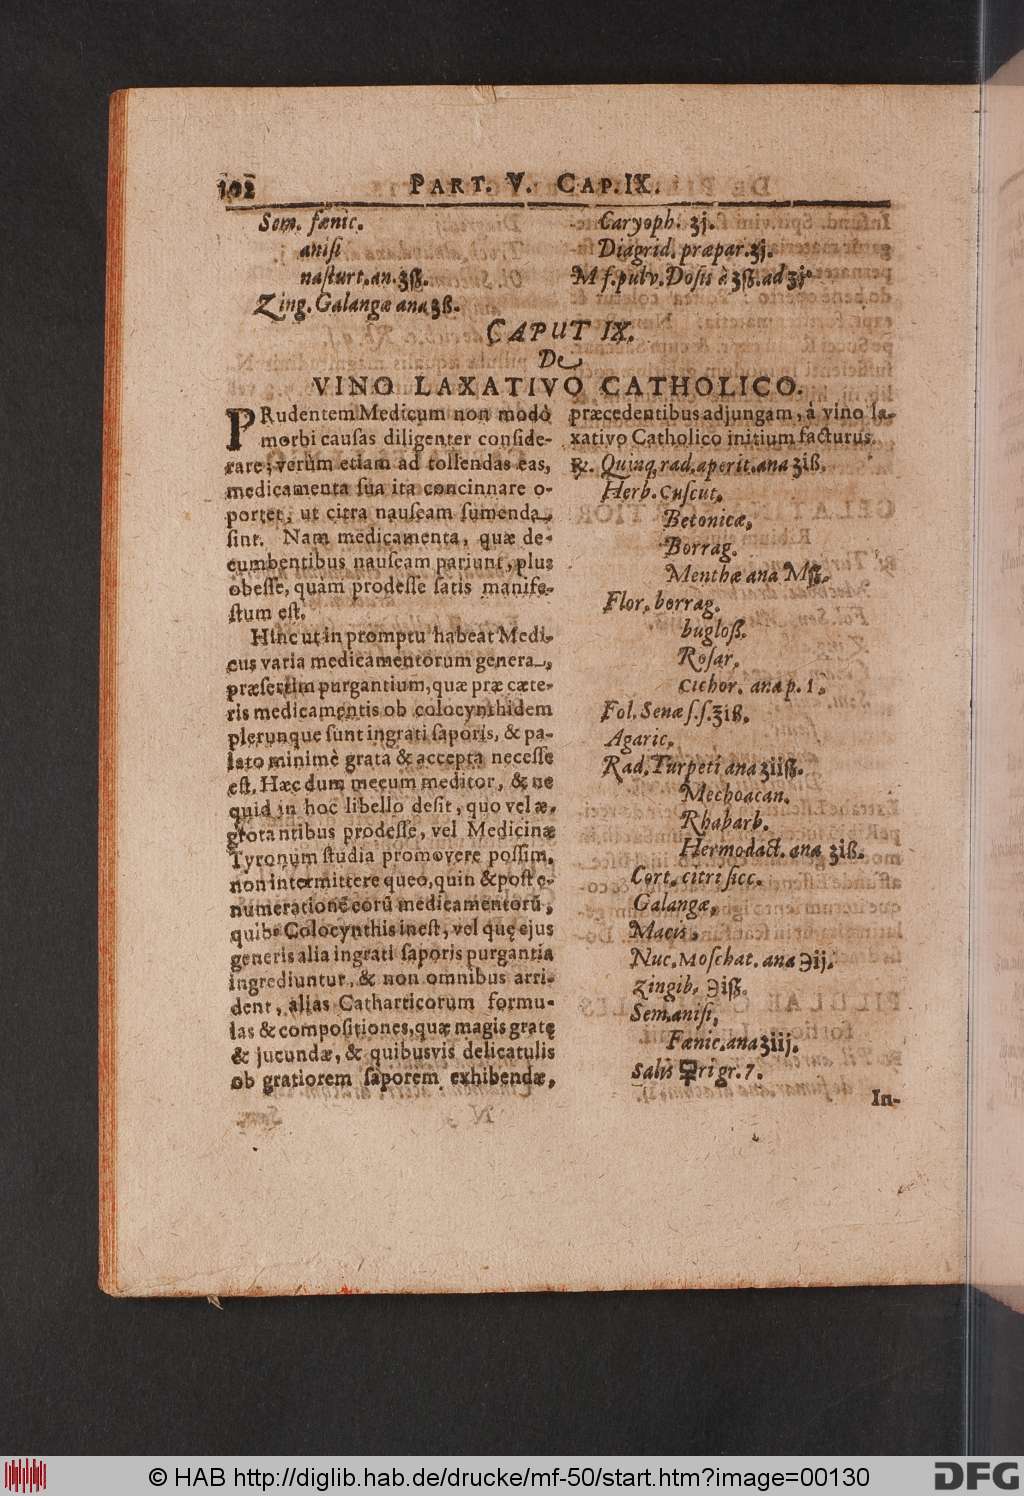 102 PART. V. CAP. IX.
Sem. fænic.
anisi
nasturt. an. ʒß.
Zing. Galangæ ana ʒß.
Caryoph. ʒj.
Diagrid. præpar. ʒj.
M f. pulv. Dosis à ʒß. ad ʒj.
CAPUT IX.
De
VINO LAXATIVO CATHOLICO.
PRudentem Medicum non modò
morbi causas diligenter conside-
rare; verùm etiam ad tollendas eas,
medicamenta sua ita concinnare o-
portet, ut citra nauseam sumenda
sint. Nam medicamenta, quæ de-
cumbentibus nauseam pariunt, plus
obesse, quàm prodesse satis manife-
stum est.
Hinc ut in promptu habeat Medi-
cus varia medicamentorum genera,
præsertim purgantium, quæ præ cæte-
ris medicamentis ob colocynthidem
plerunque sunt ingrati saporis, & pa-
lato minimè grata & accepta necesse
est. Hæc dum mecum meditor, & ne
quid in hoc libello desit, quo vel æ-
grotantibus prodesse, vel Medicinæ
Tyronum studia promovere possim,
non intermittere queo, quin & post e-
numerationē eorū medicamentorū,
quib9 Colocynthis inest, vel quę ejus
generis alia ingrati saporis purgantia
ingrediuntur, & non omnibus arri-
dent, alias Catharticorum formu-
las & compositiones, quæ magis gratę
& jucundæ, & quibusvis delicatulis
ob gratiorem saporem exhibendæ,
præcedentibus adjungam, à vino la-
xativo Catholico initium facturus.
℞. Quinq. rad. aperit. ana ʒiß.
Herb. Cuscut.
Betonicæ,
Borrag.
Menthæ ana Mß.
Flor. borrag.
bugloß.
Rosar.
Cichor. ana p. 1.
Fol. Senæ s. s. ʒiß.
Agaric.
Rad. Turpeti ana ʒiiß.
Mechoacan.
Rhabarb.
Hermodact. ana ʒiß.
Cort. citri sicc.
Galangæ,
Macis,
Nuc. Moschat. ana ℈ij.
Zingib. ℈iß.
Sem. anisi,
Fænic. ana ʒiij.
Salis 🜿ri gr. 7.
In-
© HAB http://diglib.hab.de/drucke/mf-50/start.htm?image=00130
DFG